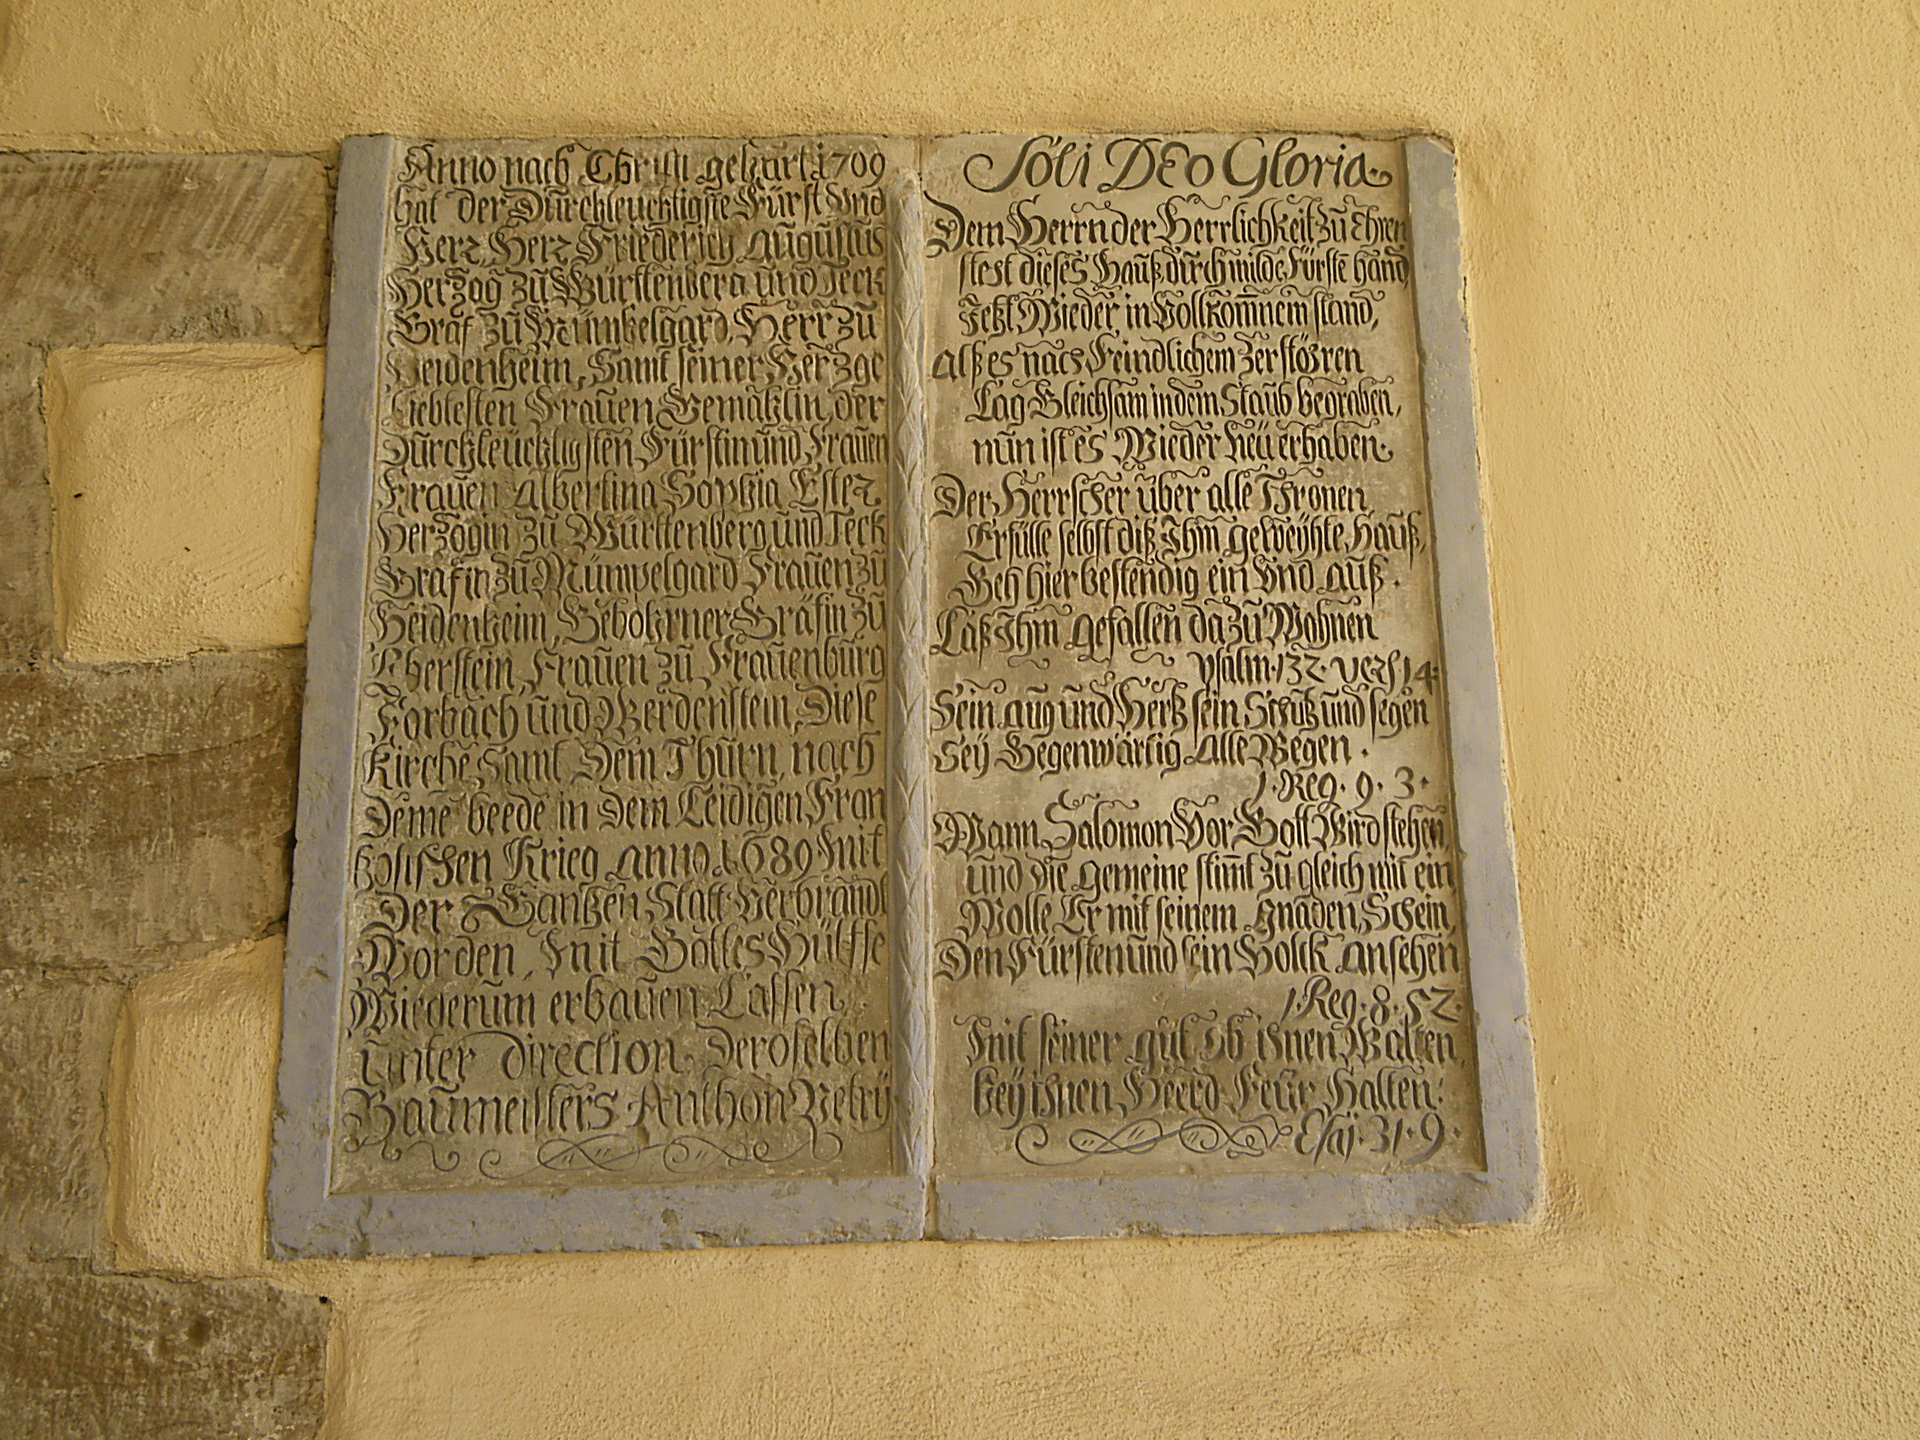 Anno nach Christi gebürt 1709
hat der Dürchleüchtigste Fürst Und
Herr, Herr Friederich Augüstus
Hertzog zü Württenberg und Teck
Graf zü Mümbelgard, Herr zü
Heidenheim, Samt seiner Hertzge
liebtesten Fraüen Gemählin, der
Dürchleüchtigsten Fürstin ünd Fraüen
Fraüen Albertina Sophia Ester
Hertzogin zü Württenberg und Teck
Gräfin zü Mümpelgard Fraüen zü
Heidenheim, Gebohrner Gräfin zü
Eberstein, Fraüen zü Fraüenbürg
Forbach ünd Werdenstein, Diese
Kirche Samt Dem Thürn, nach
Deme beede in Dem Leidigen Fran
tzösischen Krieg anno 1689 mit
Der Gantzen Statt Verbrandt
Worden, mit Gottes Hülffe
Wiederüm erbaüen Lassen
ünter Direction Deroselben
Baümeisters Anthon Petrÿ
Soli DEo Gloria
Dem Herrn der Herrlichkeit zü Ehren
stest dieses Haüß, dürch milde Fürste hand,
Jetzt Wieder in Vollkom̄nem stand,
Alß es nach Feindlichem Zerstöhren
Lag Gleichsam in dem Staüb begraben,
nün ist es Wieder Neü erhaben.
Der Herrscher über alle Thronen
Erfülle selbst diß Ihm geweÿhte Haüß,
Geh hier bestendig ein Und Auß.
Laß Ihm gefallen da zü Wohnen
Psalm. 132. vers 14.
Sein aug und Hertz sein Schütz und segen
Seÿ Gegenwärtig Alle Wegen.
1. Reg. 9. 3.
Wann Salomon Vor Gott Wird stehen,
und die gemeine stim̄t zü gleich mit ein
Wolle Er mit seinem gnaden Schein,
Den Fürsten und sein Volck ansehen
1. Reg. 8. 52.
mit seiner güt ob ihnen Walten,
beÿ ihnen Heerd Feür Halten.
Esaj. 31. 9.